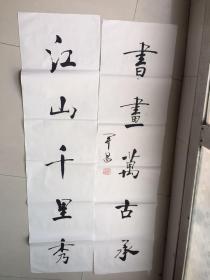 書畫萬古承
江山千里秀